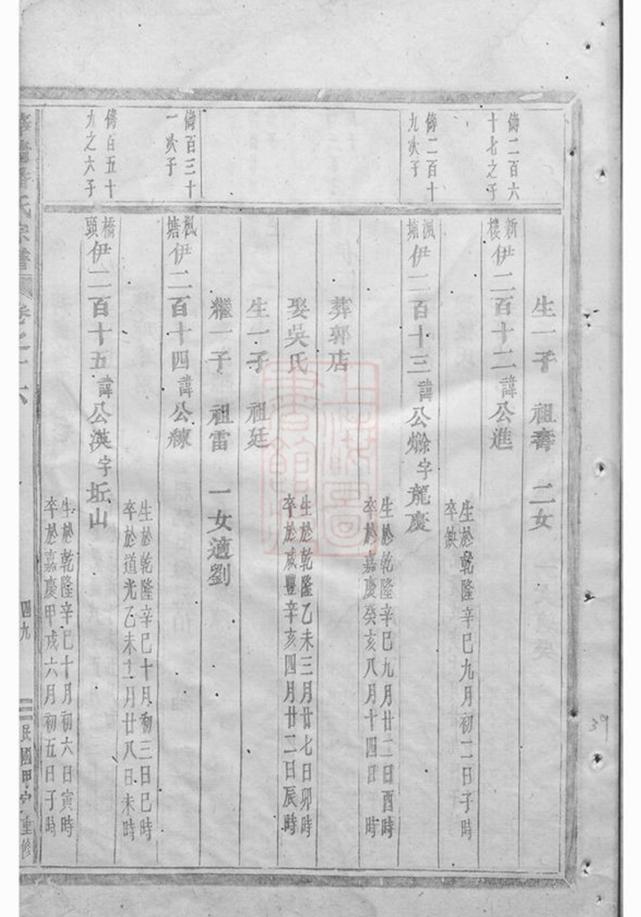 生一子 祖壽 二女
傳二百六十七之子
新樓 伊二百十二 諱公進
生於乾隆辛巳九月初二日子時
卒缺
傳二百十九次子
楓塘 伊二百十三 諱公燦 字龍慶
生於乾隆辛巳九月廿二日酉時
卒於嘉慶癸亥八月十四日 時
葬郭店
娶吳氏
生於乾隆乙未三月廿七日卯時
卒於咸豐辛亥四月廿二日辰時
生一子 祖廷
繼一子 祖雷 一女適劉
傳百三十一次子
楓塘 伊二百十四 諱公練
生於乾隆辛巳十月初三日巳時
卒於道光乙未二月廿八日未時
傳百五十九之六子
橋頭 伊二百十五 諱公漢 字坵山
生於乾隆辛巳十月初六日寅時
卒於嘉慶甲戌六月初五日子時
氏宗譜 卷之十六
四九
民國甲 重修
39